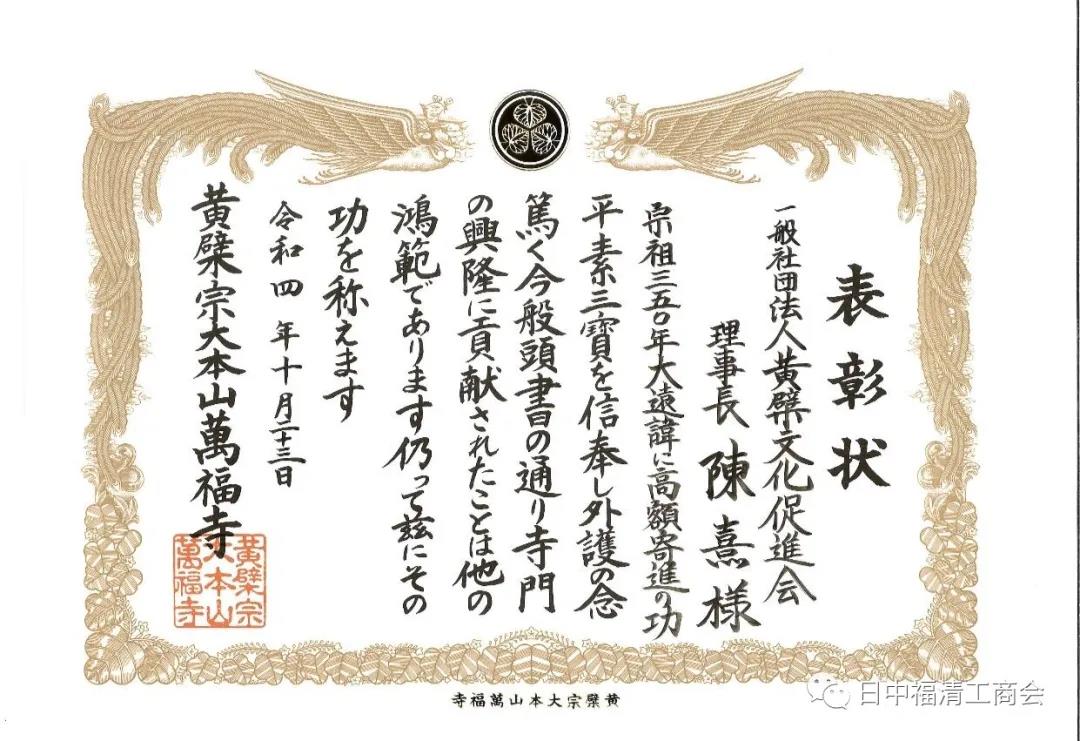 表彰状
一般社団法人黄檗文化促進会
理事長 陳熹様
宗祖三五〇年大遠諱に高額寄進の功
平素三寶を信奉し外護の念
篤く今般頭書の通り寺門
の興隆に貢献されたことは他の
鴻範であります仍って茲にその
功を称えます
令和四年十月二十三日
黄檗宗大本山萬福寺
黄檗宗
大本山
萬福寺
寺福萬山本大宗檗黄
日中福清工商会